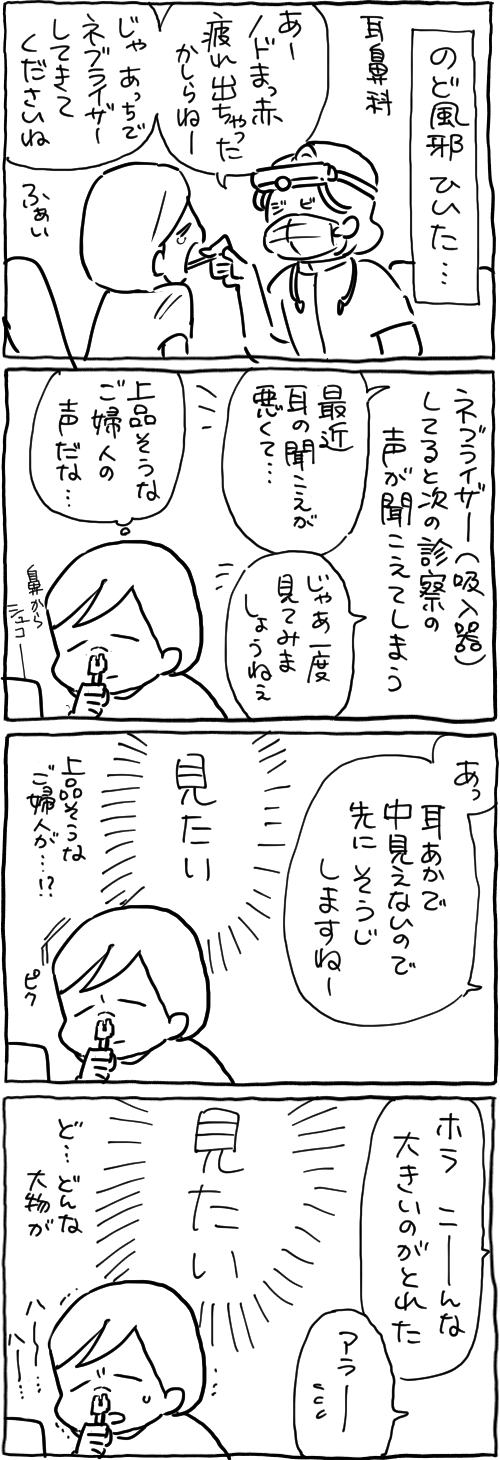 のど風邪ひいた…
耳鼻科
あー
ノドまっ赤
疲れ出ちゃった
かしらねー
じゃ あっちで
ネブライザー
してきて
くださいね
ふぁい
ネブライザー(吸入器)
してると次の診察の
声が聞こえてしまう
最近
耳の聞こえが
悪くて…
じゃあ一度
見てみま
しょうねぇ
上品そうな
ご婦人の
声だな…
鼻から
シュコー
あっ
耳あかで
中見えないので
先にそうじ
しますねー
見たい
上品そうな
ご婦人が…!?
ピク
ホラ こーんな
大きいのがとれた
アラー
見たい
ど…どんな
大物が
ハー…
ハー…